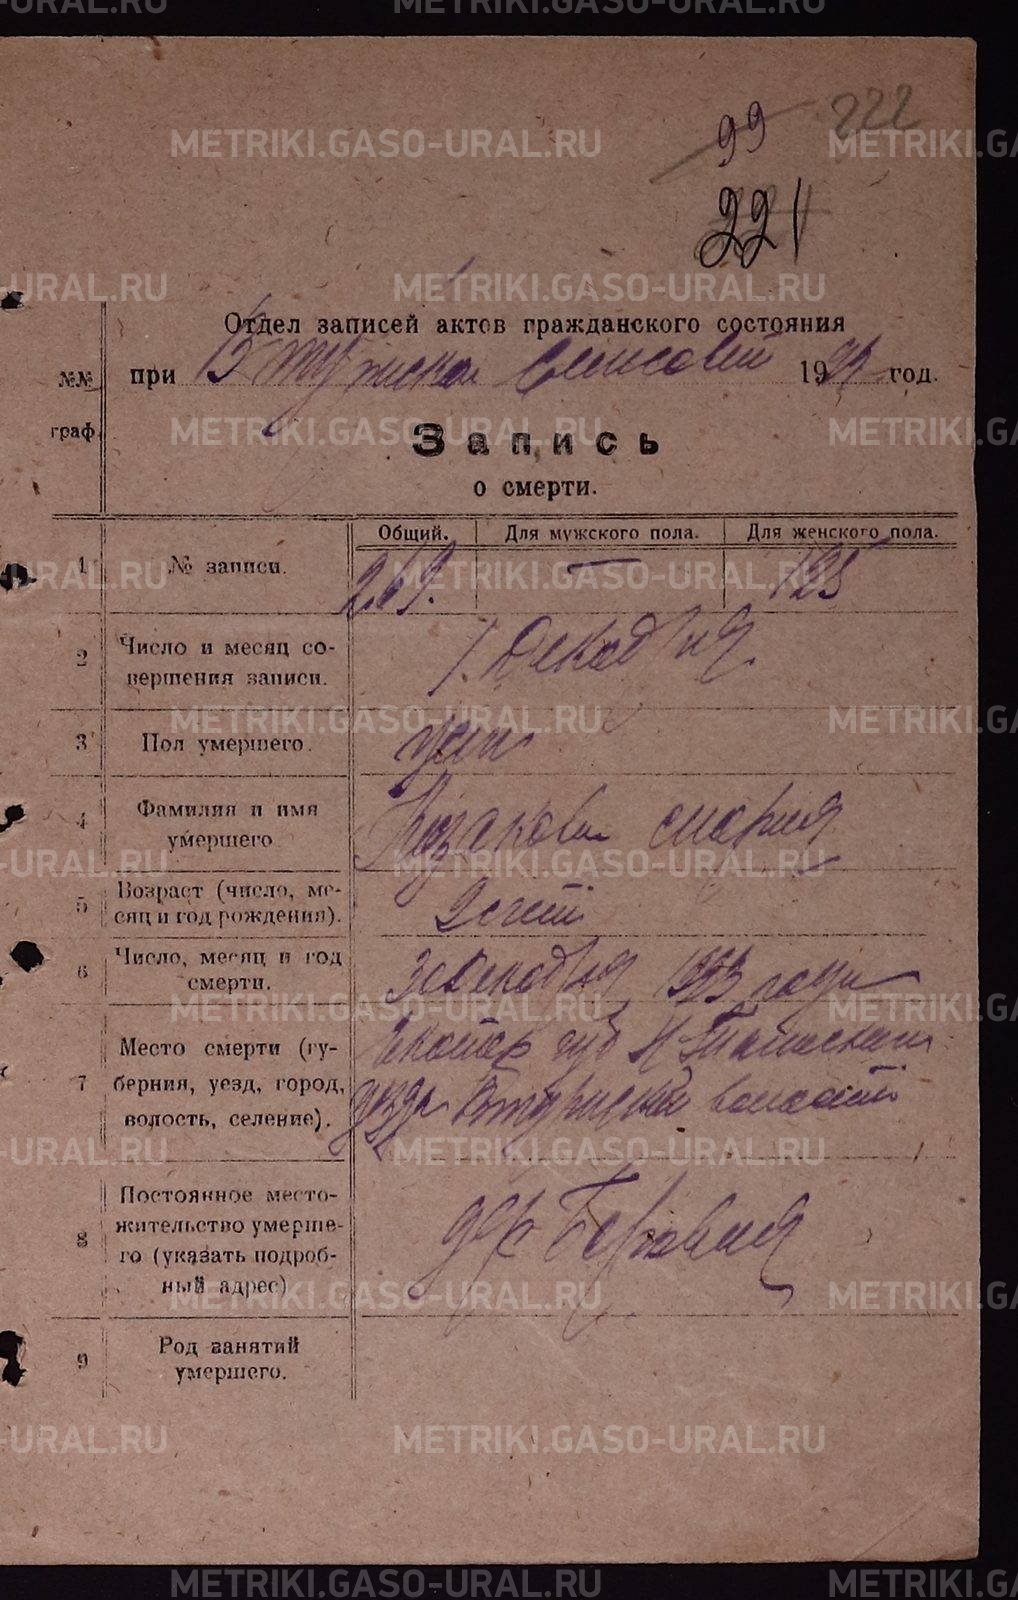 METRIKI.GASO-URAL.RU
99 222
221
Отдел записей актов гражданского состояния
при волисполкоме 19 год.
№№ граф.
Запись
о смерти.
Общий. Для мужского пола. Для женского пола.
1 № записи. 269. — 125
2 Число и месяц со-
вершения записи. 1. Декабря
3 Пол умершего. жен
4 Фамилия и имя
умершего Казакова Мария
5 Возраст (число, ме-
сяц и год рождения). 2 лет
6 Число, месяц и год
смерти. Декабря 1923 года
7 Место смерти (гу-
берния, уезд, город,
волость, селение). Екатер губ Н-Тагильский
уезда волости
8 Постоянное место-
жительство умерше-
го (указать подроб-
ный адрес) дер
9 Род занятий
умершего.